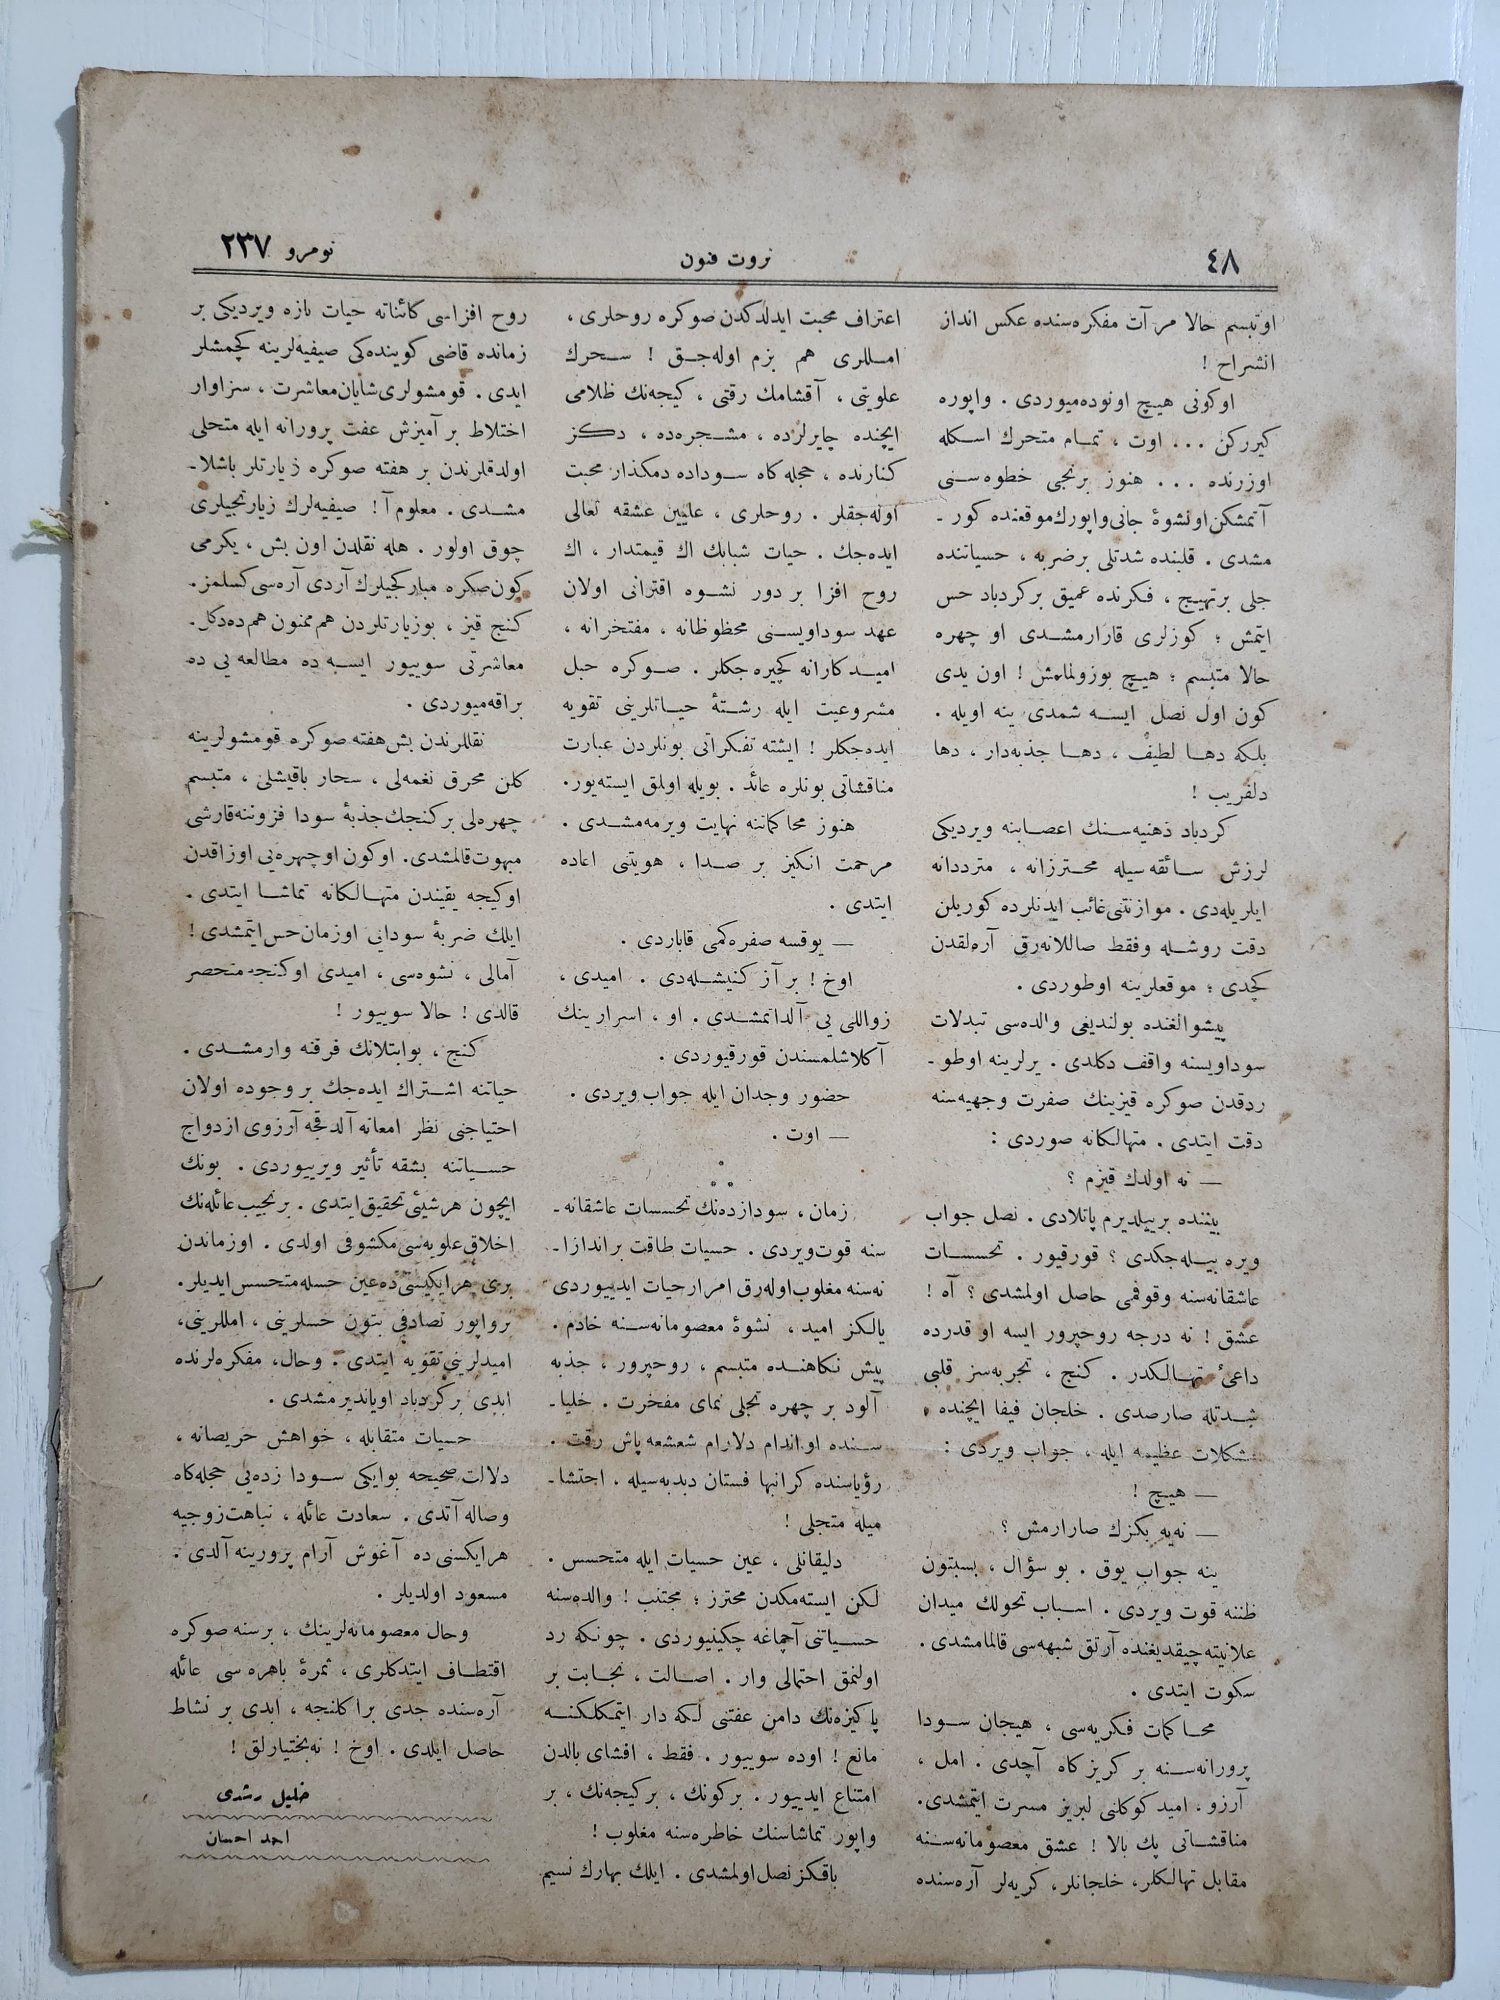 ٤٨
ثروت فنون
نومرو ٢٣٧
اوتبسم حالا مرآت مفكره‌سنده عكس انداز
انشراح !
اوكونى هيچ اونوده‌ميوردى . واپوره
كيرركن ... اوت ، تمام متحرك اسكله
اوزرنده ... هنوز برنجى خطوه‌سنى
آتمشكن اونشوهٔ جانى‌واپورك‌موقعنده كور ـ
مشدى . قلبنده شدتلى برضربه ، حسياتنده
جلى برتهيج ، فكرنده عميق بركردباد حس
ايتمش ؛ كوزلرى قارارمشدى او چهره
حالا متبسم ؛ هيچ بوزولمامش ! اون يدى
كون اول نصل ايسه شمدى ينه اويله .
بلكه دها لطيف ، دها جذبه‌دار ، دها
دلفريب !
كردباد ذهنيه‌سنك اعصابنه ويرديكى
لرزش سائقه‌سيله محترزانه ، مترددانه
ايلريله‌دى . موازنتنى غائب ايدنلرده كوريلن
دقت روشله وفقط صاللانه‌رق آره‌لقدن
كچدى ؛ موقعلرينه اوطوردى .
پيشوالغنده بولنديغى والده‌سى تبدلات
سوداويسنه واقف دكلدى . يرلرينه اوطو ـ
ردقدن صوكره قيزينك صفرت وجهيه‌سنه
دقت ايتدى . متهالكانه صوردى :
— نه اولدك قيزم ؟
بيننده برييلديرم پاتلادى . نصل جواب
ويره بيله‌جكدى ؟ قورقيور . تحسسات
عاشقانه‌سنه وقوفمى حاصل اولمشدى ؟ آه !
عشق ! نه درجه روحپرور ايسه او قدرده
داعئ تهالكدر . كنج ، تجربه‌سز قلبى
شدتله صارصدى . خلجان فيفا ايچنده
مشكلات عظيمه ايله ، جواب ويردى :
— هيچ !
— نه‌يه بكزك صارارمش ؟
ينه جواب يوق . بو سؤال ، بسبتون
ظننه قوت ويردى . اسباب تحولك ميدان
علانيته چيقديغنده آرتق شبهه‌سى قالمامشدى .
سكوت ايتدى .
محاكمات فكريه‌سى ، هيجان سودا
پرورانه‌سنه بر كريزكاه آچدى . امل ،
آرزو ، اميد كوكلنى لبريز مسرت ايتمشدى.
مناقشاتى پك بالا ! عشق معصومانه‌سنه
مقابل تهالكلر ، خلجانلر ، كريه‌لر آره‌سنده
اعتراف محبت ايدلدكدن صوكره روحلرى ،
امللرى هم بزم اوله‌جق ! سحرك
علويتى ، آقشامك رقتى ، كيجه‌نك ظلامى
ايچنده چايرلرده ، مشجره‌ده ، دكز
كنارنده ، حجله‌كاه سوداده دمكذار محبت
اوله‌جقلر . روحلرى ، عليين عشقه تعالى
ايده‌جك . حيات شبابك اك قيمتدار ، اك
روح افزا بر دور نشوه اقترانى اولان
عهد سوداويسنى محظوظانه ، مفتخرانه ،
اميدكارانه كچيره‌جكلر . صوكره حبل
مشروعيت ايله رشتهٔ حياتلرينى تقويه
ايده‌جكلر ! ايشته تفكراتى بونلردن عبارت
مناقشاتى بونلره عائد . بويله اولمق ايسته‌يور.
هنوز محاكماتنه نهايت ويرمه‌مشدى .
مرحمت انكيز بر صدا ، هويتنى اعاده
ايتدى .
— يوقسه صفره‌كمى قاباردى .
اوخ ! بر آز كنيشله‌دى . اميدى ،
زواللى يى آلداتمشدى . او ، اسرارينك
آكلاشلمسندن قورقيوردى .
حضور وجدان ايله جواب ويردى .
— اوت .
زمان ، سودازده‌نك تحسسات عاشقانه‌ـ
سنه قوت‌ويردى . حسيات طاقت براندازا‌ـ
نه‌سنه مغلوب‌اوله‌رق امرارحيات ايدييوردى
يالكز اميد ، نشوهٔ معصومانه‌سنه خادم .
پيش نكاهنده متبسم ، روحپرور ، جذبه
آلود بر چهره تجلى نماى مفخرت . خليا‌ـ
سنده اواندام دلارام شعشعه‌پاش رقت .
رؤياسنده كرانبها فستان دبدبه‌سيله ، احتشا‌ـ
ميله متجلى !
دليقانلى ، عين حسيات ايله متحسس .
لكن ايسته‌مكدن محترز ؛ مجتنب ! والده‌سنه
حسياتنى آچماغه چكينيوردى . چونكه رد
اولنمق احتمالى وار . اصالت ، نجابت بر
پاكيزه‌نك دامن عفتنى لكه دار ايتمكلكنه
مانع ! اوده سويیور . فقط ، افشاى بالدن
امتناع ايدييور . بركونك ، بركيجه‌نك ، بر
واپور تماشاسنك خاطره‌سنه مغلوب !
باقكز نصل اولمشدى . ايلك بهارك نسيم
روح افزاسى كائناته حيات تازه ويرديكى بر
زمانده قاضى كوينده‌كى صيفيه‌لرينه كچمشلر
ايدى . قومشولرى شايان‌معاشرت ، سزاوار
اختلاط بر آميزش عفت پرورانه ايله متحلى
اولدقلرندن بر هفته صوكره زيارتلر باشلا‌ـ
مشدى . معلوم آ ! صيفيه‌لرك زيارتجيلرى
چوق اولور . هله نقلدن اون بش ، يكرمى
كون‌صكره مباركجيلرك آردى آره‌سى كسلمز.
كنج قيز ، بوزيارتلردن هم ممنون هم‌ده‌دكل.
معاشرتى سوييور ايسه ده مطالعه يى ده
براقه‌ميوردى .
نقللرندن بش‌هفته صوكره قومشولرينه
كلن محرق نغمه‌لى ، سحار باقيشلى ، متبسم
چهره‌لى بركنجك جذبهٔ سودا فزوننه‌قارشى
مبهوت‌قالمشدى. اوكون اوچهره‌يى اوزاقدن
اوكيجه يقيندن متهالكانه تماشا ايتدى .
ايلك ضربهٔ سودانى اوزمان‌حس‌ايتمشدى !
آمالى ، نشوه‌سى ، اميدى اوكنجه منحصر
قالدى ! حالا سوييور !
كنج ، بوابتلانك فرقنه وارمشدى .
حياتنه اشتراك ايده‌جك بر وجوده اولان
احتياجنى نظر امعانه آلدقجه آرزوى ازدواج
حسياتنه بشقه تأثير ويرييوردى . بونك
ايچون هرشيئى تحقيق‌ايتدى . برنجيب‌عائله‌نك
اخلاق‌علويه‌سى مكشوفى اولدى . اوزماندن
برى هرايكيسى‌ده عين حسله متحسس‌ايديلر.
برواپور تصادفى بتون حسلرينى ، امللرينى ،
اميدلرينى‌تقويه ايتدى . وحال، مفكره‌لرنده
ابدى بركردباد اوياندیرمشدى .
حسيات متقابله ، خواهش حريصانه ،
دلالت‌صحيحه بوايكى سودا زده‌يى حجله‌كاه
وصاله آتدى . سعادت عائله ، نباهت زوجيه
هرايكسنى ده آغوش آرام پرورينه آلدى .
مسعود اولديلر .
وحال معصومانه‌لرينك ، برسنه صوكره
اقتطاف ايتدكلرى ، ثمرهٔ باهره سى عائله
آره‌سنده جدى براكلنجه ، ابدى بر نشاط
حاصل ايلدى . اوخ ! نه‌بختيارلق !
خليل رشدى
احمد احسان